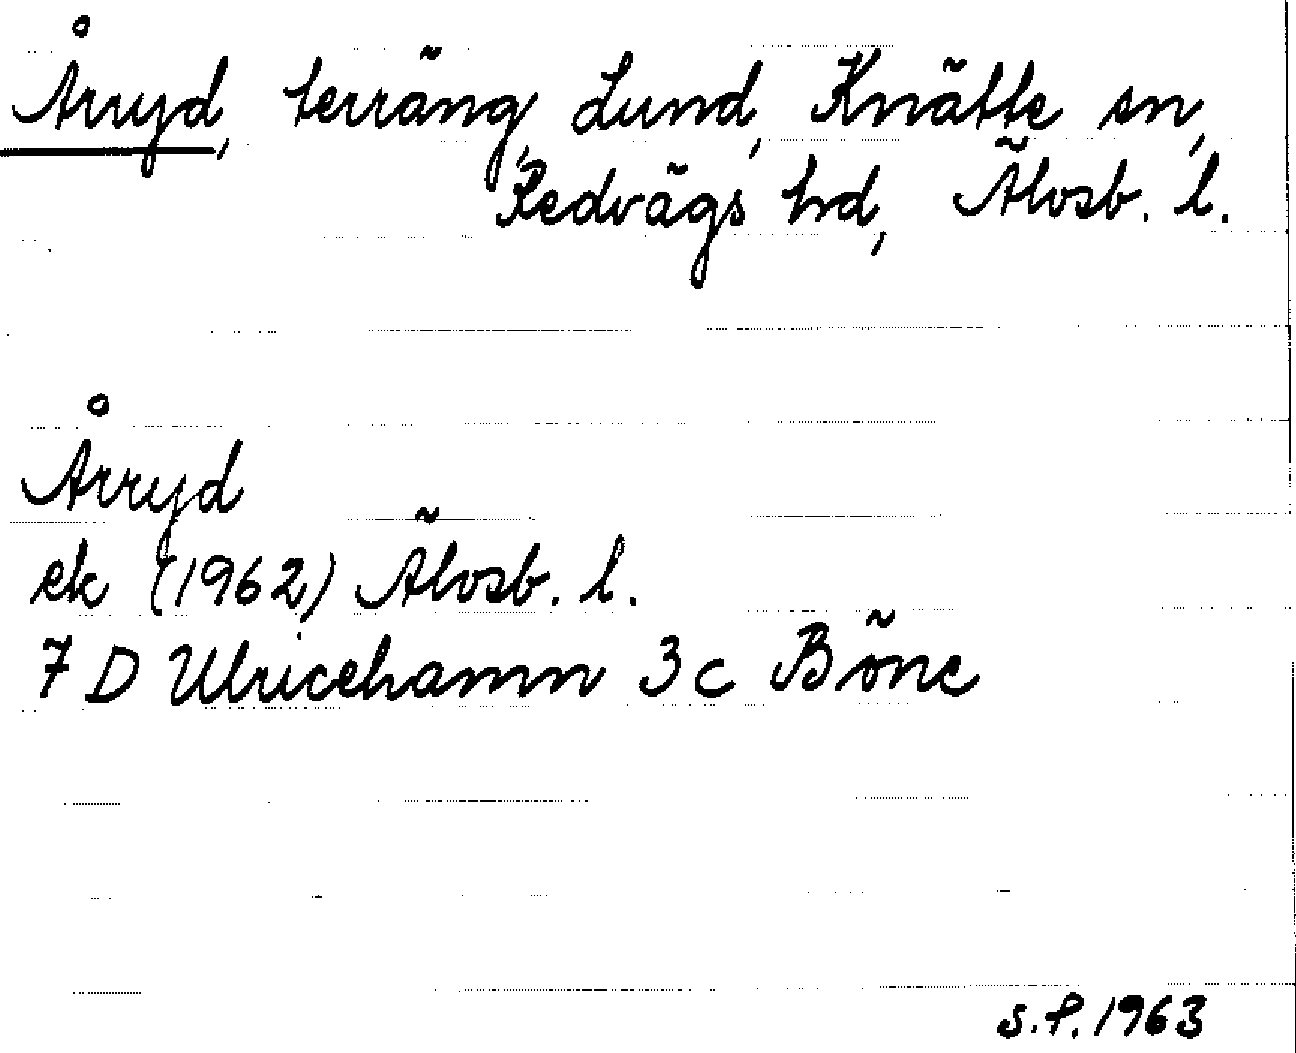 Årryd, terräng, Lund, Knätte sn,
Redvägs hd, Älvsb. l.
Årryd
ek (1962) Älvsb. l.
7 D Ulricehamn 3 c Böne
S.P. 1963